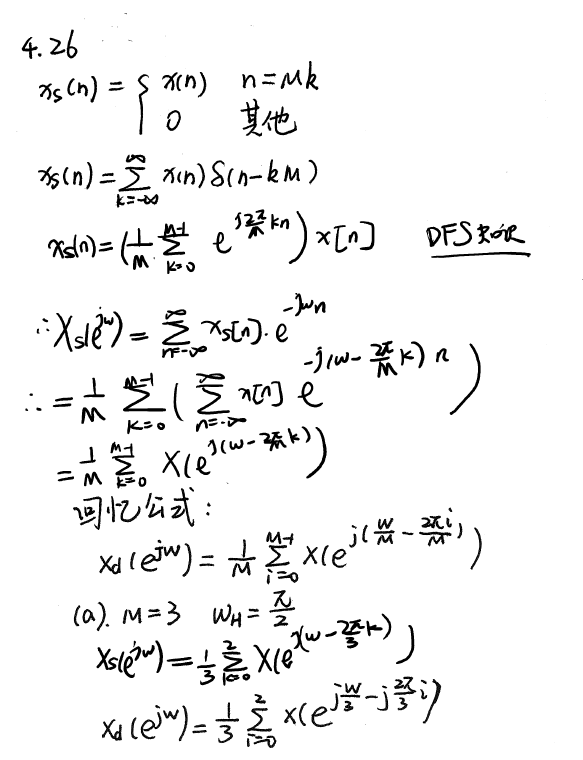 4.26
x_s(n) = { x(n)  n=Mk
0  其他
x_s(n) = \sum_{k=-\infty}^{\infty} x(n) δ(n-kM)
x_s(n) = (\frac{1}{M} \sum_{k=0}^{M-1} e^{j\frac{2π}{M}kn}) x[n]  DFS
∴ X_s(e^{jw}) = \sum_{n=-\infty}^{\infty} x_s[n]·e^{-jwn}
∴ = \frac{1}{M} \sum_{k=0}^{M-1} ( \sum_{n=-\infty}^{\infty} x[n] e^{-j(w-\frac{2π}{M}k)n} )
= \frac{1}{M} \sum_{k=0}^{M-1} X(e^{j(w-\frac{2π}{M}k)})
回忆公式:
X_d(e^{jw}) = \frac{1}{M} \sum_{i=0}^{M-1} X(e^{j(\frac{w}{M}-\frac{2πi}{M})})
(a). M=3  W_H=\frac{π}{2}
X_s(e^{jw}) = \frac{1}{3} \sum_{k=0}^{2} X(e^{j(w-\frac{2π}{3}k)})
X_d(e^{jw}) = \frac{1}{3} \sum_{i=0}^{2} X(e^{j\frac{w}{3}-j\frac{2π}{3}i})